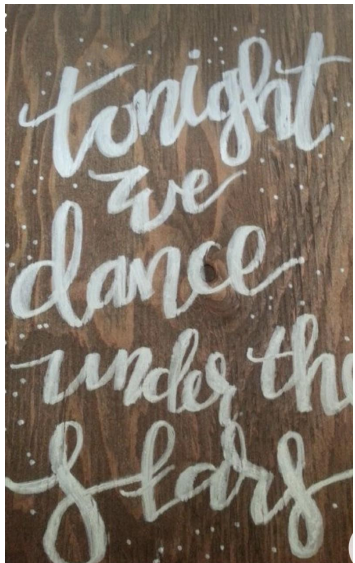 tonight
we
dance
under the
stars